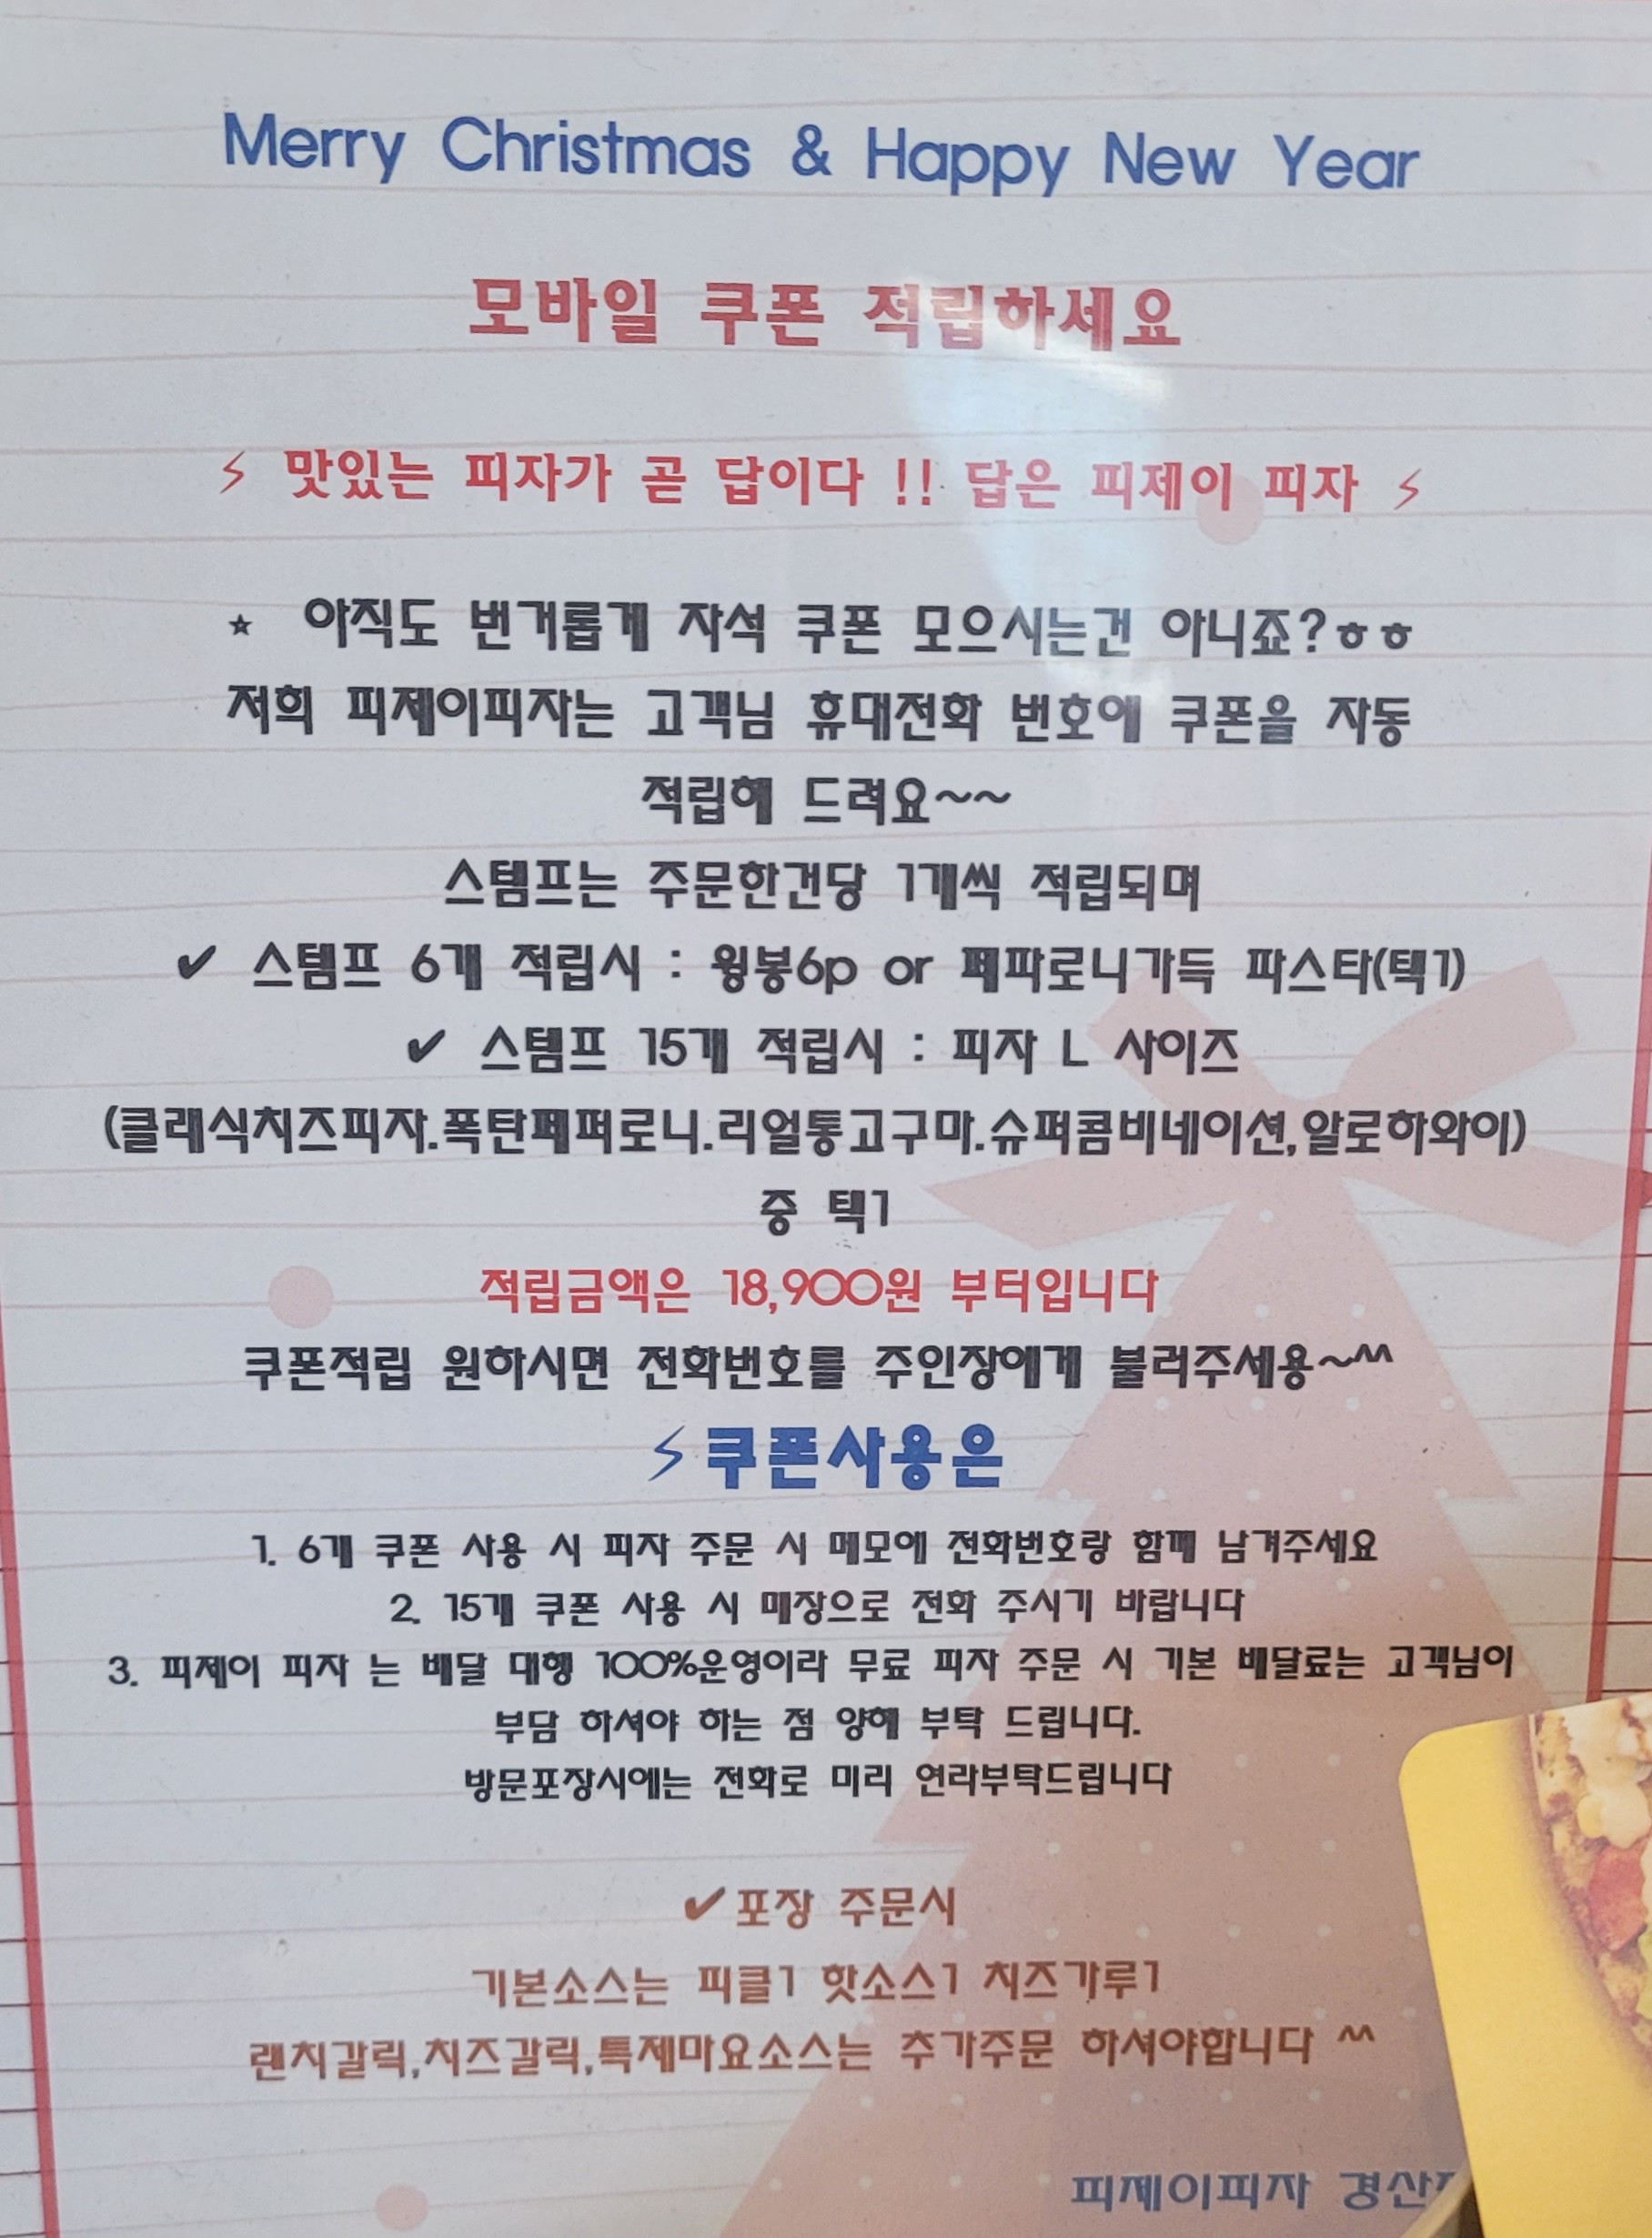 Merry Christmas & Happy New Year
모바일 쿠폰 적립하세요
⚡ 맛있는 피자가 곧 답이다 !! 답은 피제이 피자 ⚡
★ 아직도 번거롭게 자석 쿠폰 모으시는건 아니죠?ㅎㅎ
저희 피제이피자는 고객님 휴대전화 번호에 쿠폰을 자동
적립해 드려요~~
스템프는 주문한건당 1개씩 적립되며
✔ 스템프 6개 적립시 : 윙봉6p or 페파로니가득 파스타(택1)
✔ 스템프 15개 적립시 : 피자 L 사이즈
(클래식치즈피자.폭탄페퍼로니.리얼통고구마.슈퍼콤비네이션,알로하와이)
중 택1
적립금액은 18,900원 부터입니다
쿠폰적립 원하시면 전화번호를 주인장에게 불러주세용~^^
⚡쿠폰사용은
1. 6개 쿠폰 사용 시 피자 주문 시 메모에 전화번호랑 함께 남겨주세요
2. 15개 쿠폰 사용 시 매장으로 전화 주시기 바랍니다
3. 피제이 피자 는 배달 대행 100%운영이라 무료 피자 주문 시 기본 배달료는 고객님이
부담 하셔야 하는 점 양해 부탁 드립니다.
방문포장시에는 전화로 미리 연라부탁드립니다
✔포장 주문시
기본소스는 피클1 핫소스1 치즈가루1
랜치갈릭,치즈갈릭,특제마요소스는 추가주문 하셔야합니다 ^^
피제이피자 경산